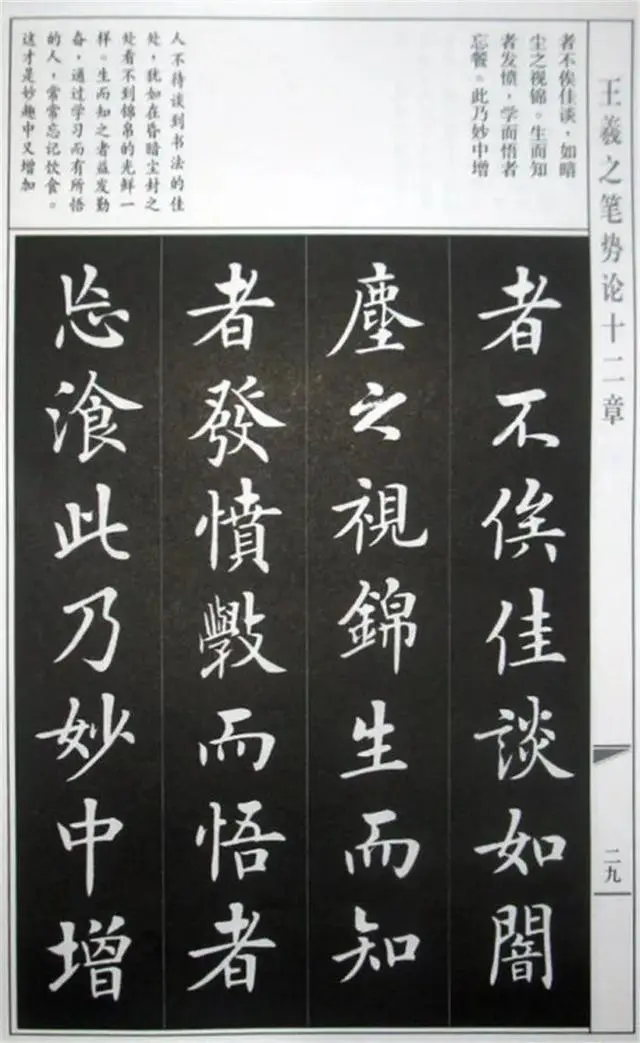 王羲之笔势论十二章
二九
者不俟佳谈，如暗
尘之视锦。生而知
者发愤，学而悟者
忘餐。此乃妙中增
人不待谈到书法的佳
处，犹如在昏暗尘封之
处看不到锦帛的光鲜一
样。生而知之者益发勤
奋，通过学习而有所悟
的人，常常忘记饮食。
这才是妙趣中又增加
者不俟佳談如闇
塵之視錦生而知
者發憤斆而悟者
忘湌此乃妙中增